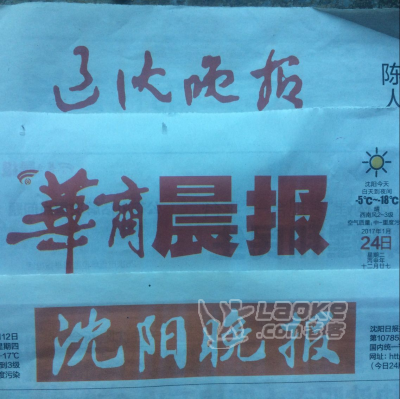 辽沈晚报
陈
人
華商晨报
沈阳今天
白天到夜间
-5℃~-18℃
晴
西南风2~3级
2017年1月
24日
星期二
丙申年
十二月廿七
沈阳晚报
Laoke.com老客
月12日
星期四
-17℃
到3级
度污染
沈阳日报
第10785
国内统一
网址：htt
(今日24